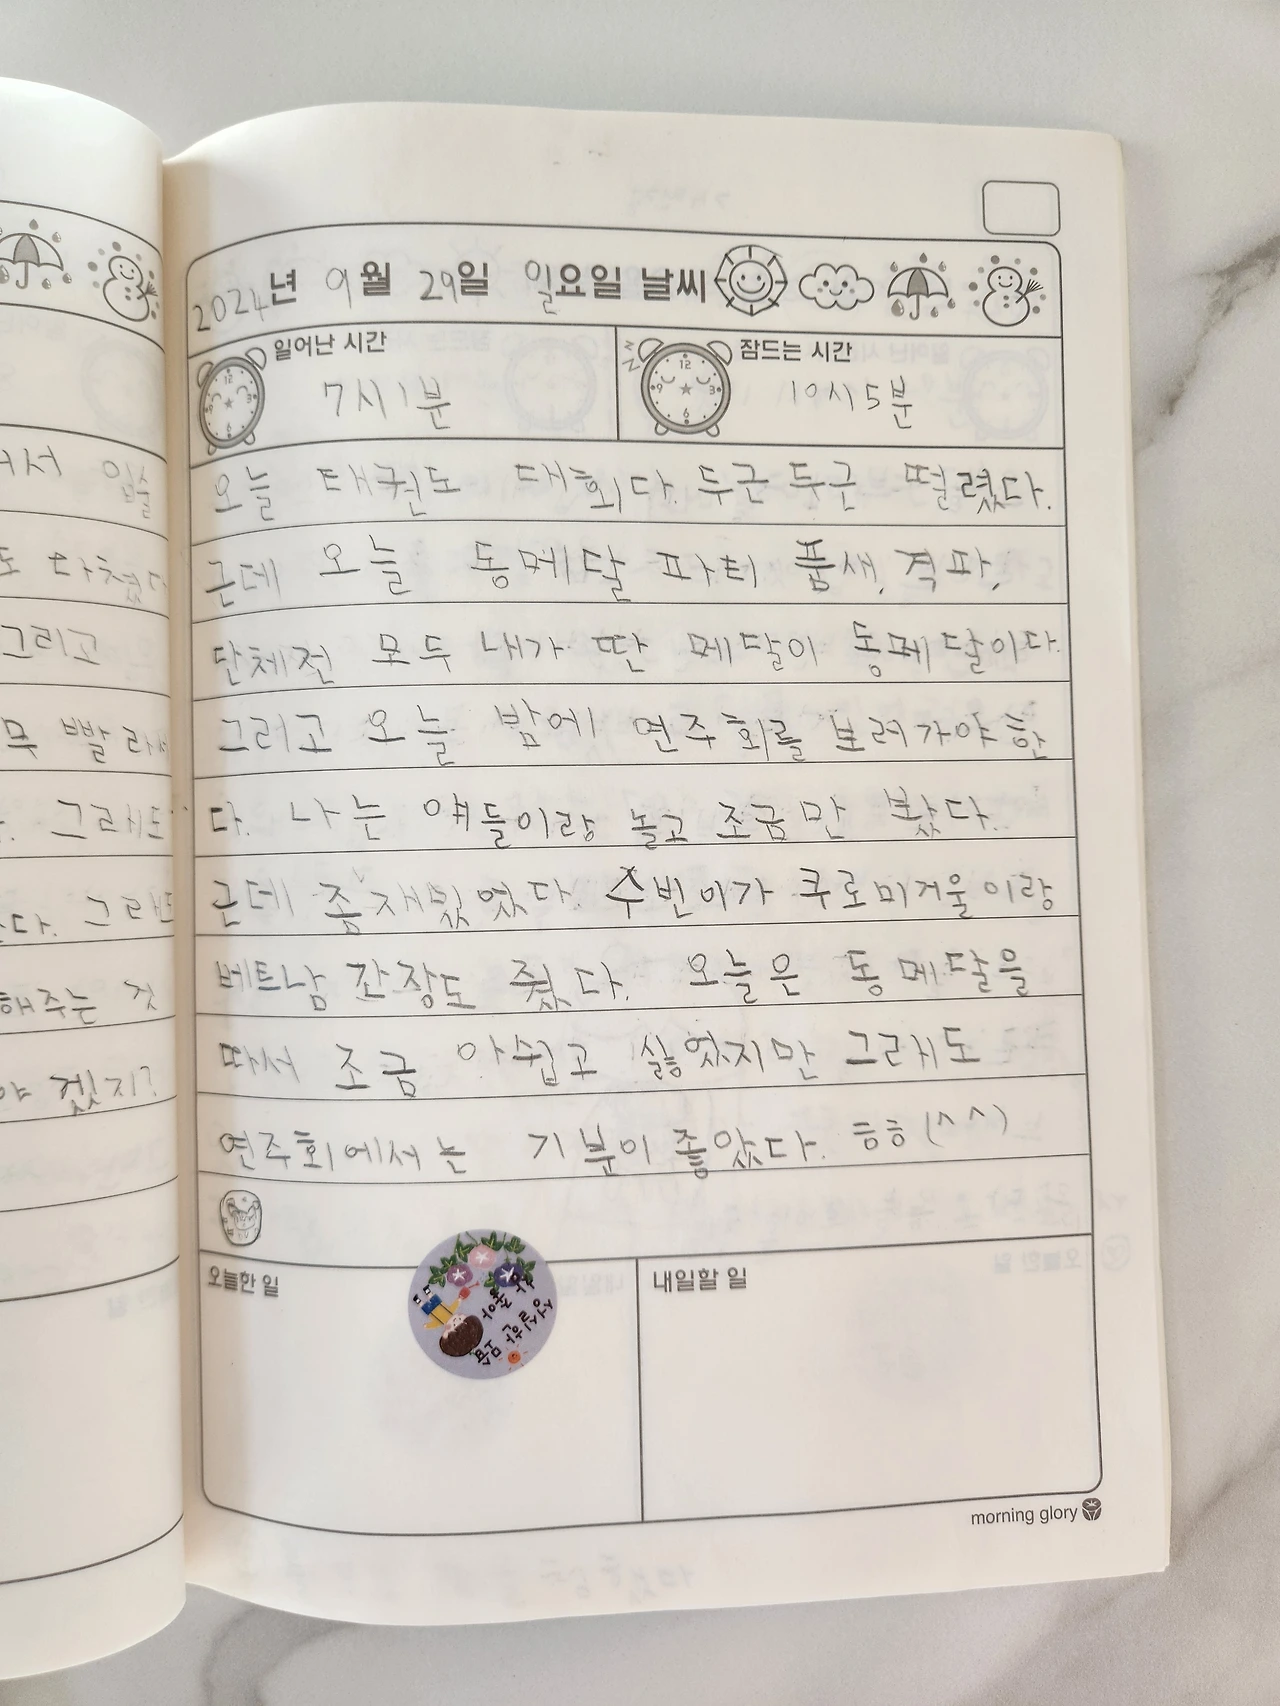 2024년 9월 29일 일요일 날씨
일어난 시간 잠드는 시간
7시 1분 10시 5분
오늘 태권도 대회다. 두근두근 떨렸다.
근데 오늘 동메달 파티 품새, 격파,
단체전 모두 내가 딴 메달이 동메달이다.
그리고 오늘 밤에 연주회를 보러가야 한
다. 나는 얘들이랑 놀고 조금만 봤다.
근데 좀 재밌었다. 수빈이가 쿠로미거울이랑
베트남 간장도 줬다. 오늘은 동메달을
따서 조금 아쉽고 싫었지만 그래도
연주회에서는 기분이 좋았다. ㅎㅎ (^^)
오늘한 일 내일할 일
참 좋아
성실한 모습
morning glory
서 입술
도 다쳤다
그리고
무 빨라서
그래도
다. 그래도
해주는 것
야 겠지?